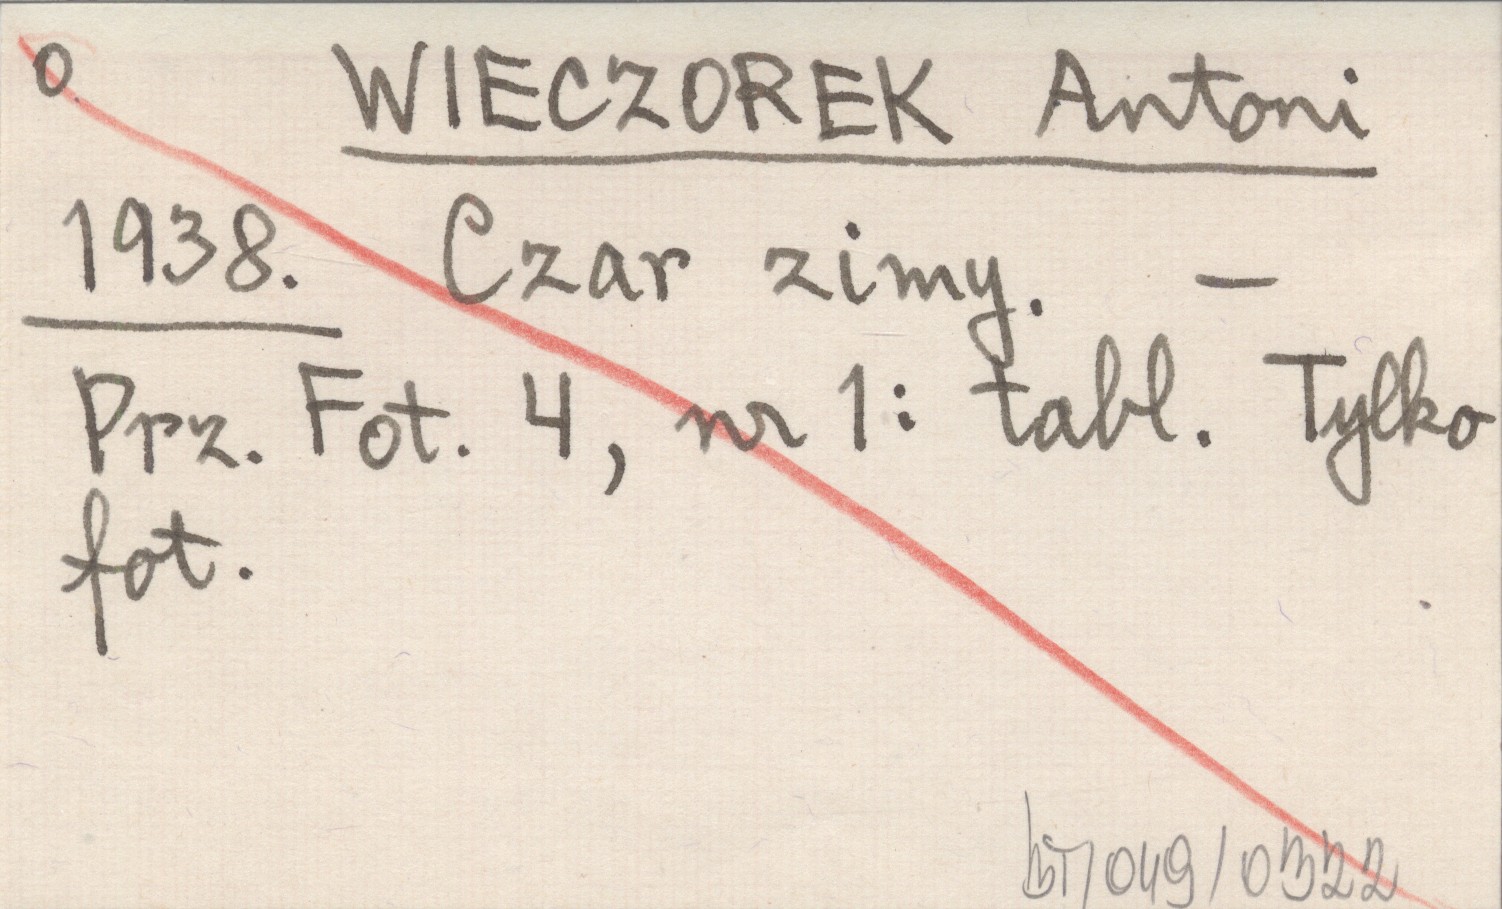 0. WIECZOREK Antoni
1938. Czar zimy. —
Prz. Fot. 4, nr 1: tabl. Tylko
fot.
bT/049/0322